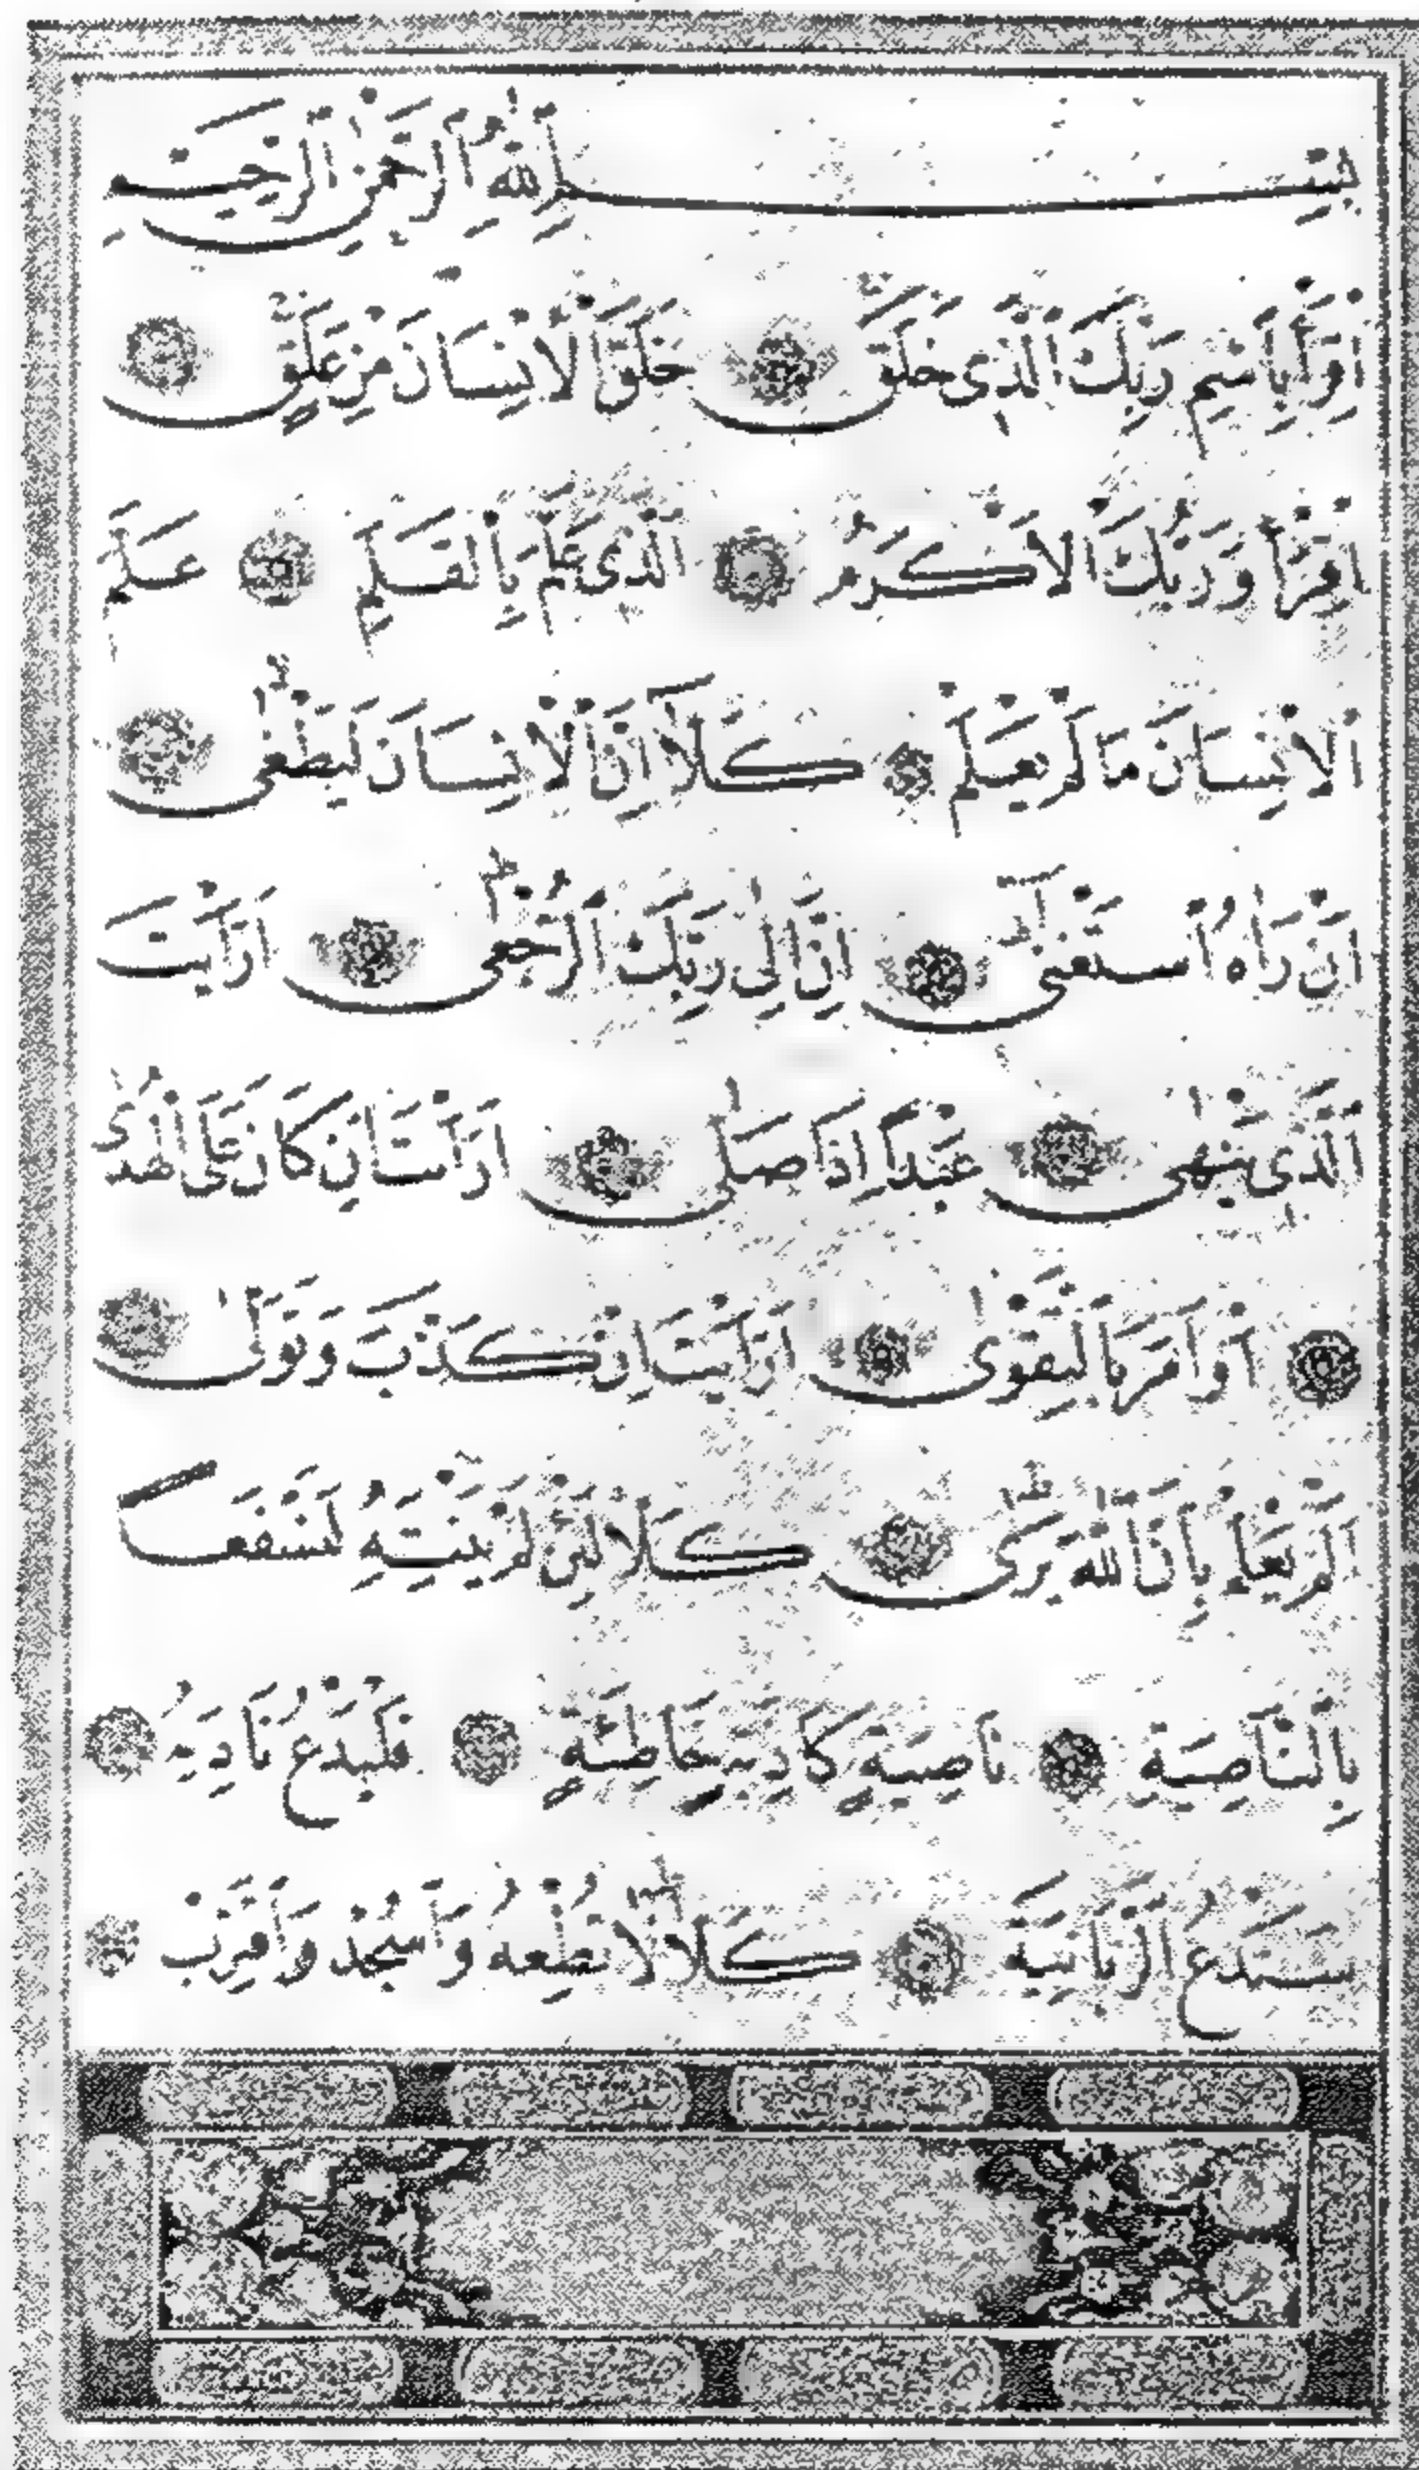 بِسْمِ ٱللَّهِ ٱلرَّحْمٰنِ ٱلرَّحِيمِ
اِقْرَأْ بِاسْمِ رَبِّكَ ٱلَّذِى خَلَقَ خَلَقَ ٱلْاِنْسَانَ مِنْ عَلَقٍ
اِقْرَأْ وَرَبُّكَ ٱلْاَكْرَمُ ٱلَّذِى عَلَّمَ بِالْقَلَمِ عَلَّمَ
ٱلْاِنْسَانَ مَا لَمْ يَعْلَمْ كَلَّآ اِنَّ ٱلْاِنْسَانَ لَيَطْغٰى
اَنْ رَاٰهُ ٱسْتَغْنٰى اِنَّ اِلٰى رَبِّكَ ٱلرُّجْعٰى اَرَاَيْتَ
ٱلَّذِى يَنْهٰى عَبْدًا اِذَا صَلّٰى اَرَاَيْتَ اِنْ كَانَ عَلَى ٱلْهُدٰى
اَوْ اَمَرَ بِالتَّقْوٰى اَرَاَيْتَ اِنْ كَذَّبَ وَتَوَلّٰى
اَلَمْ يَعْلَمْ بِاَنَّ ٱللّٰهَ يَرٰى كَلَّا لَئِنْ لَمْ يَنْتَهِ لَنَسْفَعًا
بِالنَّاصِيَةِ نَاصِيَةٍ كَاذِبَةٍ خَاطِئَةٍ فَلْيَدْعُ نَادِيَهُ
سَنَدْعُ ٱلزَّبَانِيَةَ كَلَّا لَا تُطِعْهُ وَٱسْجُدْ وَٱقْتَرِبْ